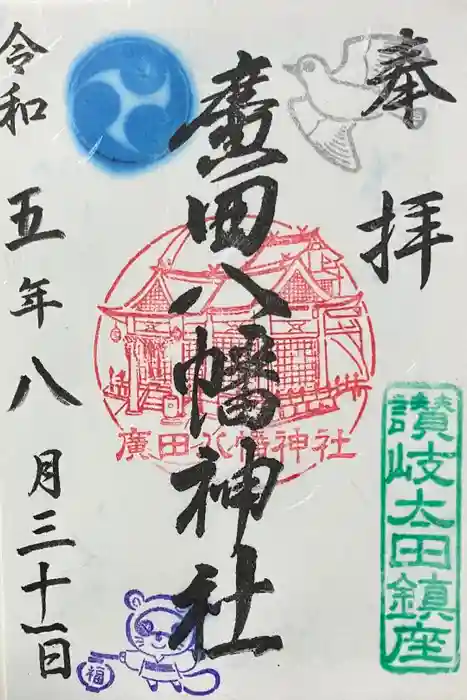 奉拝
廣田八幡神社
令和五年八月三十一日
廣田八幡神社
讃岐太田鎮座
福